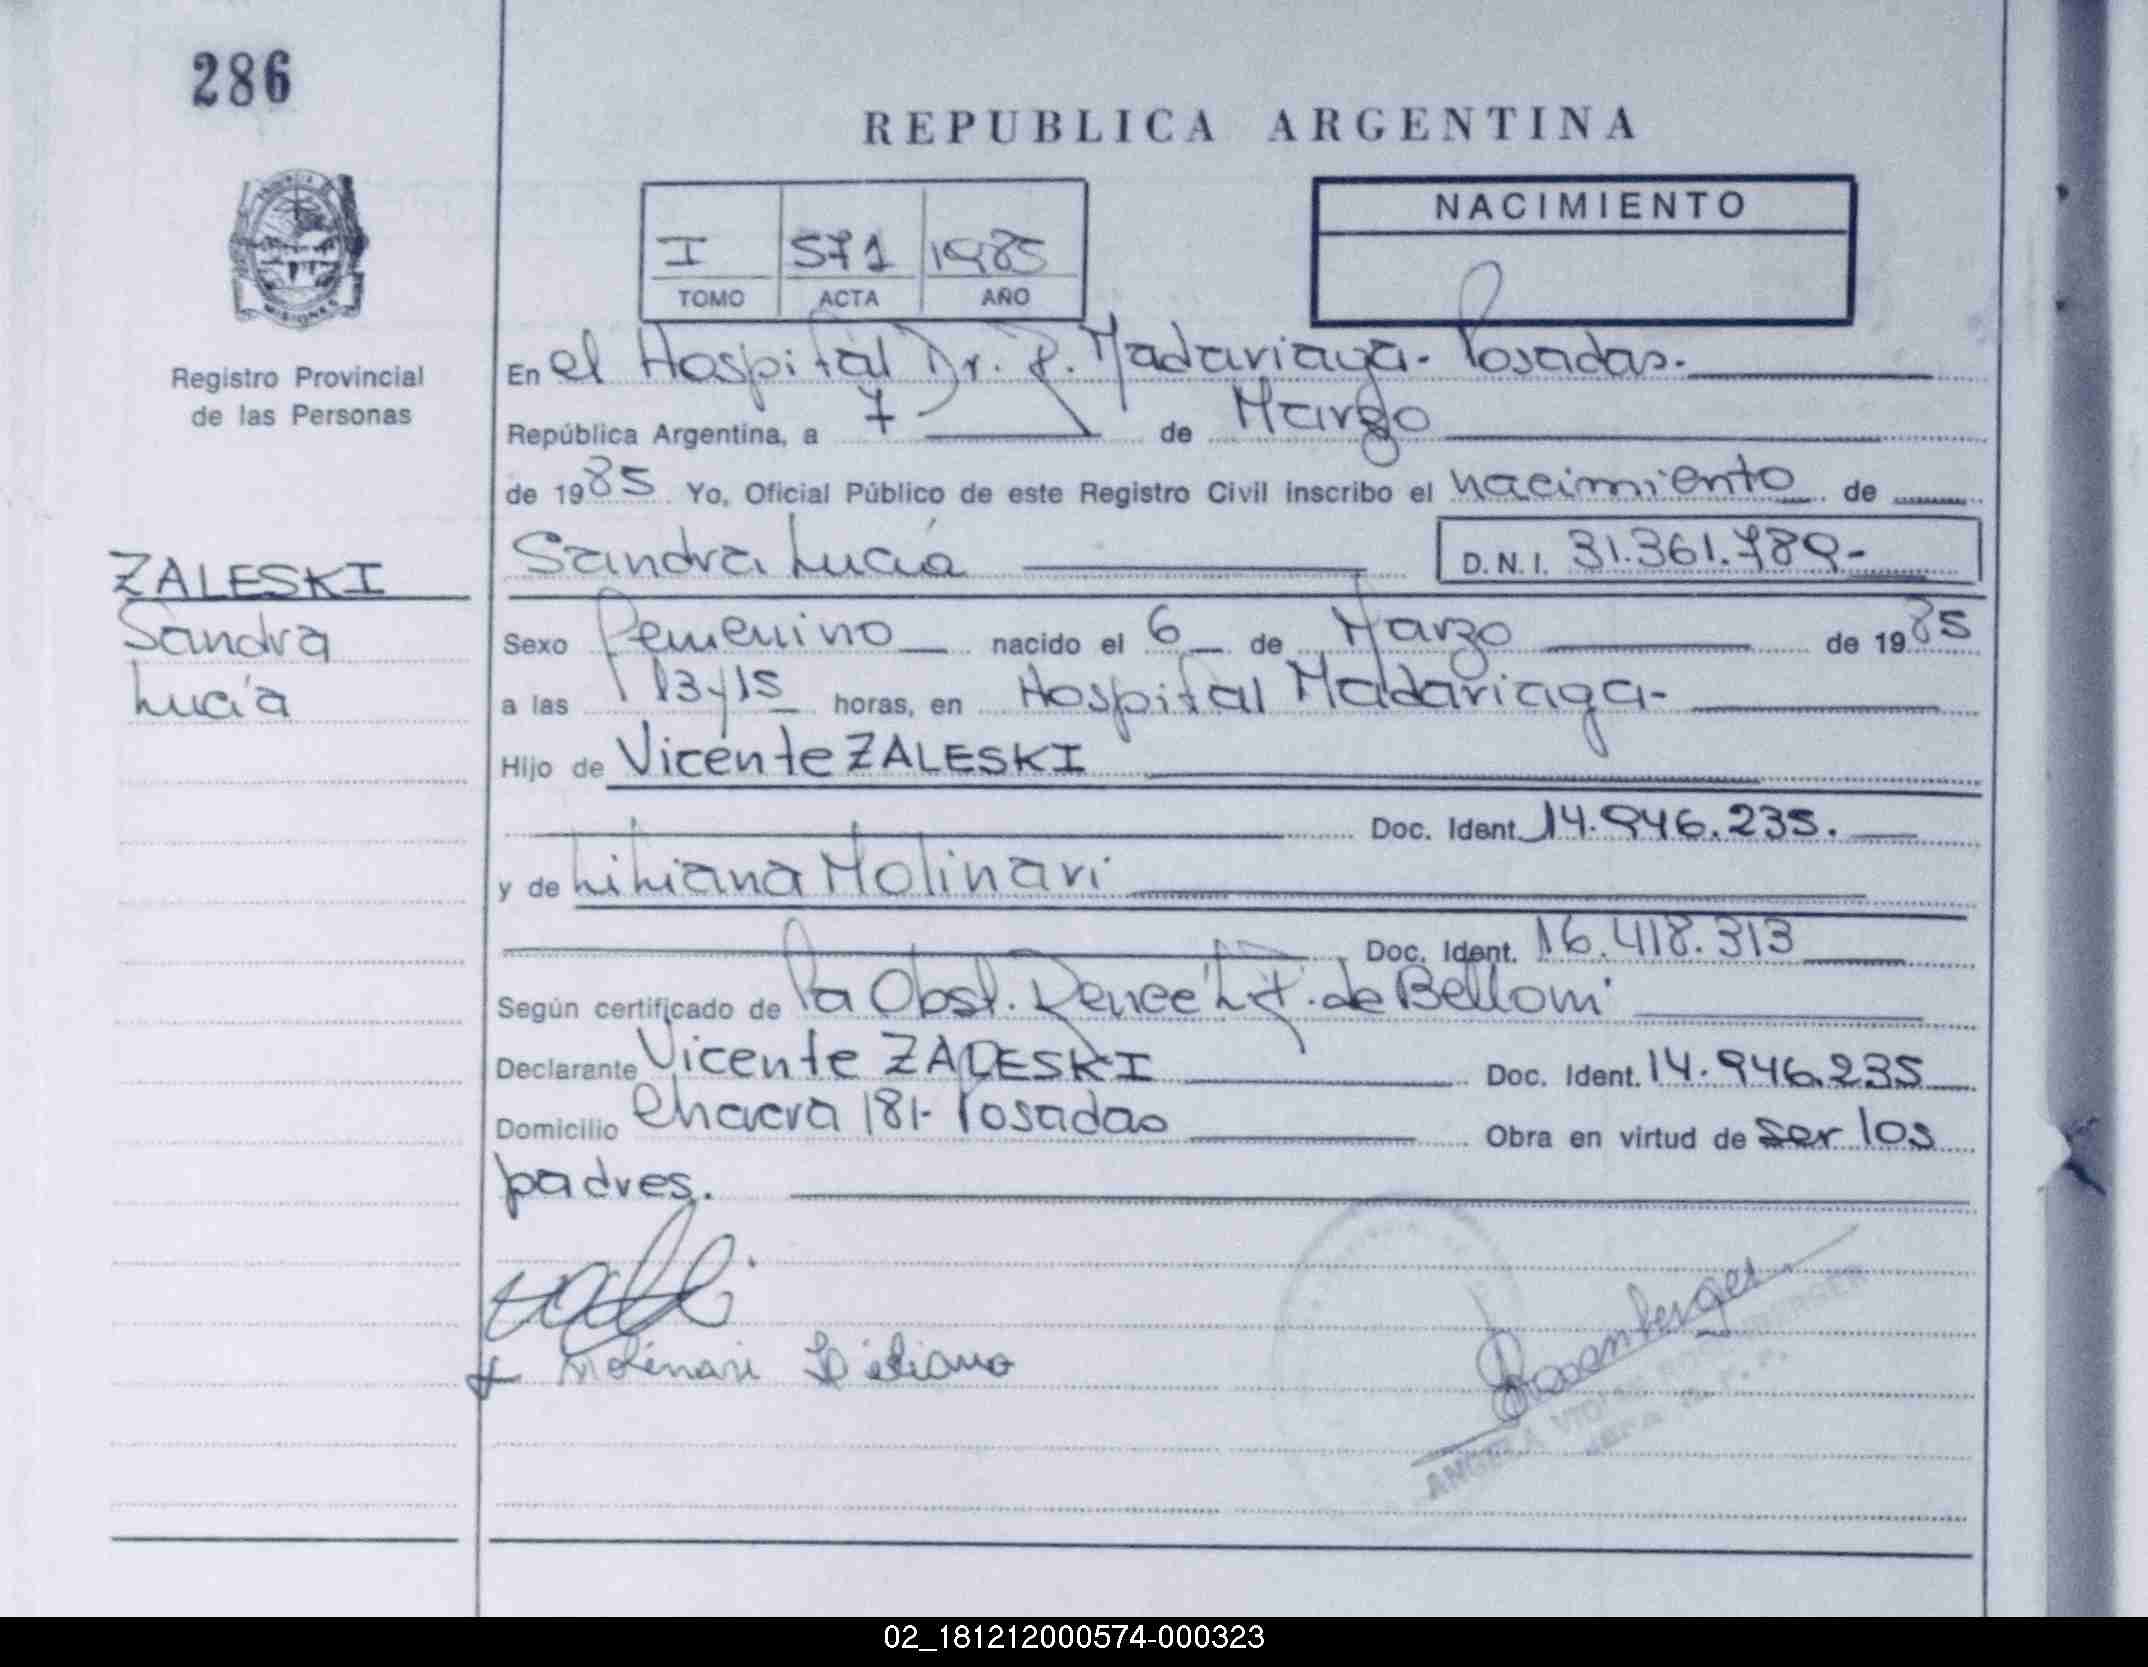 286
REPUBLICA ARGENTINA
NACIMIENTO
I 571 1985
TOMO ACTA AÑO
MISIONES
Registro Provincial
de las Personas
En el Hospital Dr. R. Madariaga - Posadas.-
República Argentina, a 7 de Marzo
de 1985 Yo, Oficial Público de este Registro Civil inscribo el nacimiento de
Sandra Lucía D.N.I. 31.361.789.-
ZALESKI
Sandra
Lucía
Sexo femenino nacido el 6 de Marzo de 1985
a las 13 y 15 horas, en Hospital Madariaga-
Hijo de Vicente ZALESKI
Doc. Ident. 14.946.235.
y de Liliana Molinari
Doc. Ident. 16.418.313
Según certificado de la Obst. de Belloni
Declarante Vicente ZALESKI Doc. Ident. 14.946.235
Domicilio Chacra 181- Posadas Obra en virtud de ser los
padres.
Molinari Liliana
Rosenberger
ANGELA ROSENBERGER
02_181212000574-000323